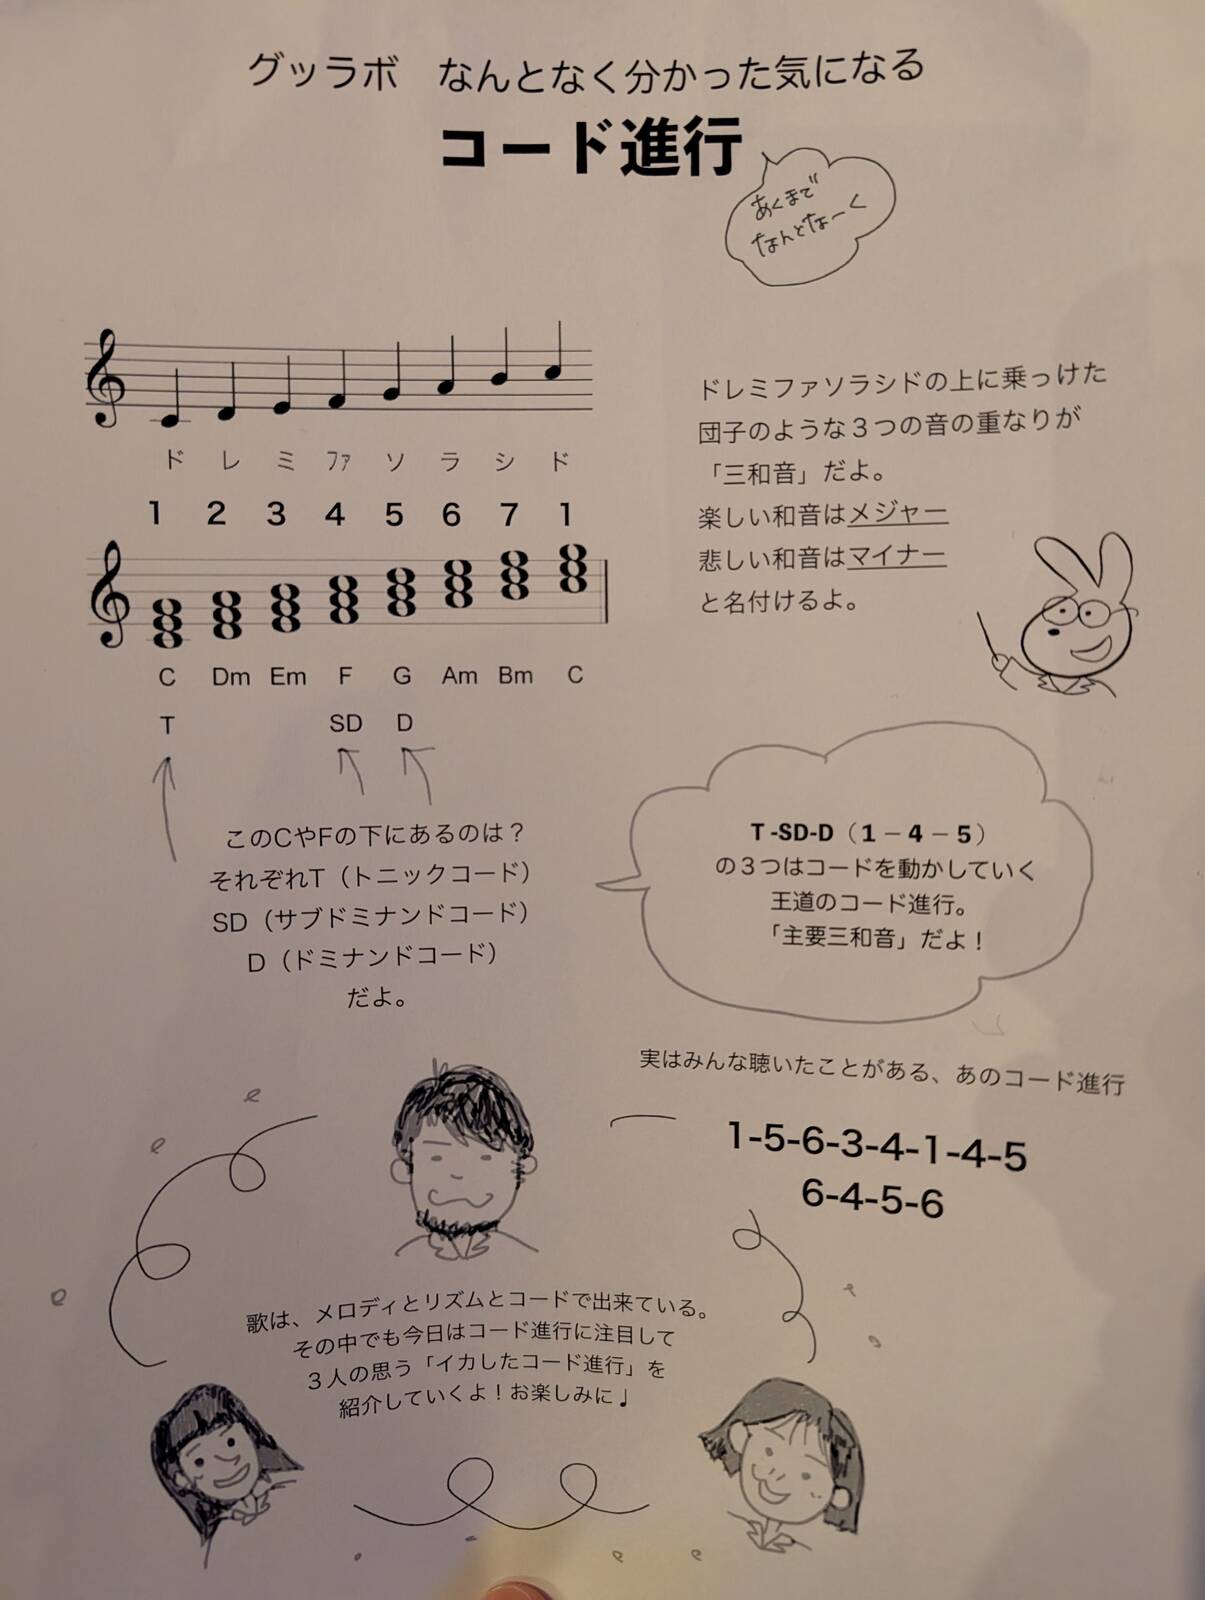 グッラボ　なんとなく分かった気になる
コード進行
あくまで
なんとなーく
ド レ ミ ファ ソ ラ シ ド
1 2 3 4 5 6 7 1
C Dm Em F G Am Bm C
T SD D
ドレミファソラシドの上に乗っけた
団子のような３つの音の重なりが
「三和音」だよ。
楽しい和音はメジャー
悲しい和音はマイナー
と名付けるよ。
このCやFの下にあるのは？
それぞれT（トニックコード）
SD（サブドミナンドコード）
D（ドミナンドコード）
だよ。
T -SD-D（１－４－５）
の３つはコードを動かしていく
王道のコード進行。
「主要三和音」だよ！
実はみんな聴いたことがある、あのコード進行
1-5-6-3-4-1-4-5
6-4-5-6
歌は、メロディとリズムとコードで出来ている。
その中でも今日はコード進行に注目して
３人の思う「イカしたコード進行」を
紹介していくよ！お楽しみに♩